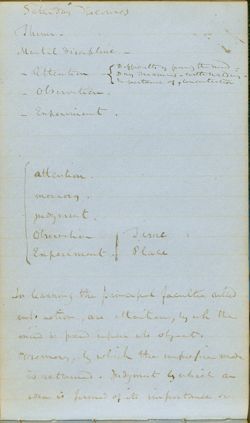 Saturday Discourses
Theme -
Mental discipline -
- Attention - { Difficulty of fixing the mind
Day dreaming -
Importance of concentration
- Observation.
- Experiment.
attention.
memory.
judgment.
Observation } Time
Experiment } Place
In learning the principal faculties called
into action, are attention, by wh the
mind is fixed upon its object.
Memory, by which the impression made
is retained. Judgment by which an
idea is formed of its importance or